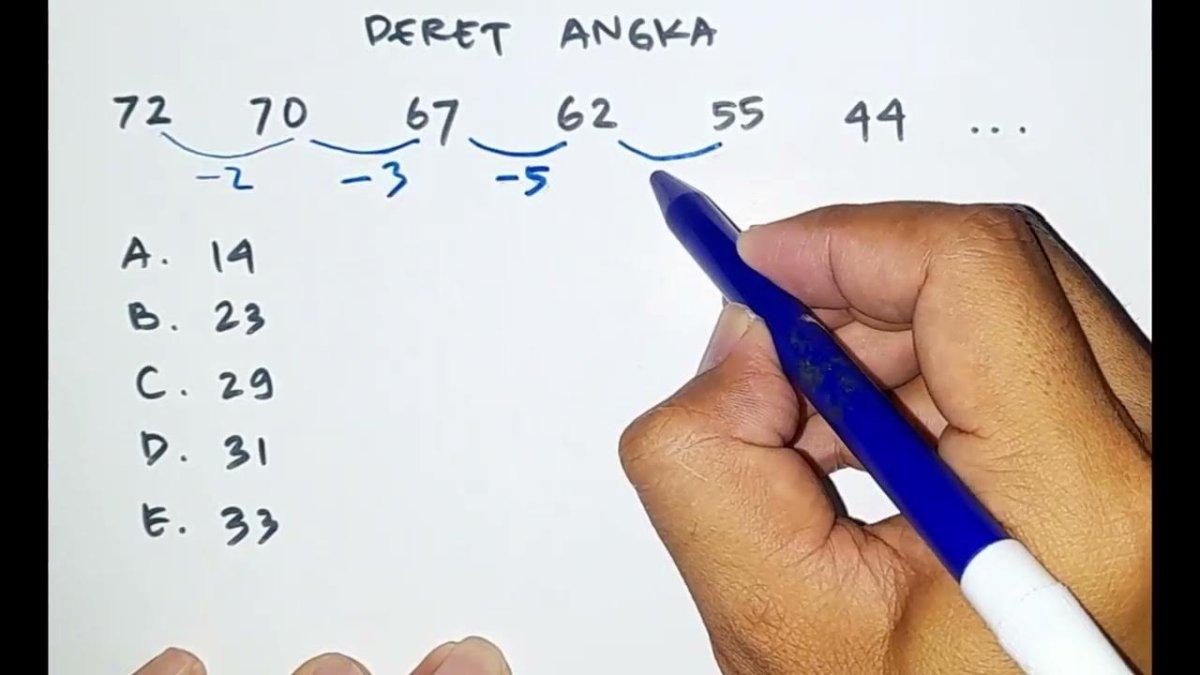 DERET ANGKA
72 70 67 62 55 44 ...
-2 -3 -5
A. 14
B. 23
C. 29
D. 31
E. 33